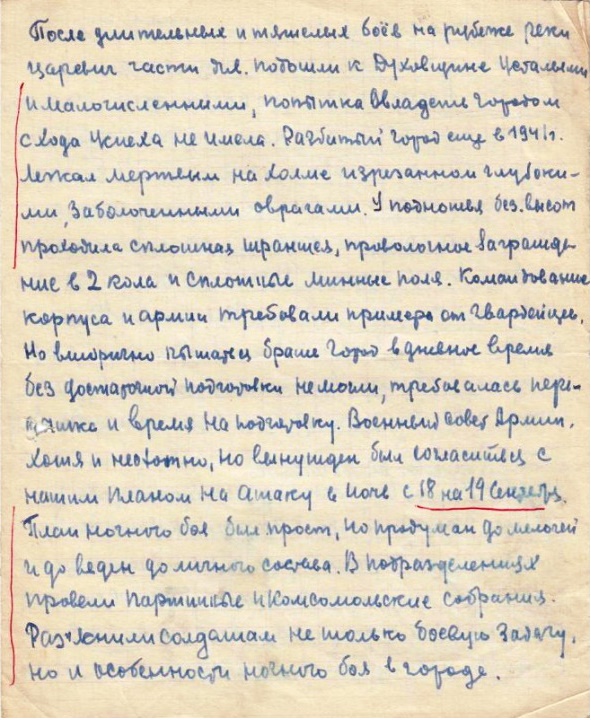 После длительных и тяжелых боёв на рубеже реки
царевич части див. подошли к Духовщине усталыми
и малочисленными, попытка овладеть городом
с хода успеха не имела. Разбитый город еще в 1941г.
лежал мертвым на холме изрезанном глубоки-
ми, заболоченными оврагами. У подножья без. высот
проходила сплошная траншея, проволочное загражде-
ние в 2 кола и сплотные минные поля. Командование
корпуса и армии требовали примера от гвардейцев.
Но вторично пытатся брать город в дневное время
без достаточной подготовки не могли, требовалась пере-
дышка и время на подготовку. Военный совет Армии.
хотя и неохотно, но вынужден был согласится с
нашим планом на атаку в ночь с 18 на 19 Сентябрь.
План ночного боя был прост, но продуман до мелочей
и до веден до личного состава. В подразделениях
провели партийные и комсомольские собрания.
Раз'яснили солдатам не только боевую задачу,
но и особенности ночного боя в городе.